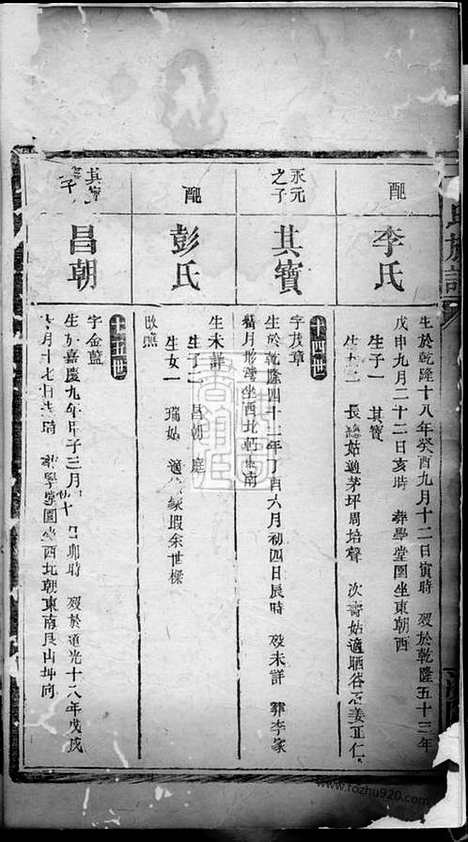 氏族譜
配
李氏
生於乾隆十八年癸酉九月十二日寅時 歿於乾隆五十三年
戊申九月二十二日亥時 葬學堂園坐東朝西
生子一 其寶
生女二 長 姑適茅坪周培聲 次 姑適晒谷石姜正仁
永元
之子
其寶
十四世
字茂章
生於乾隆四十二年丁酉六月初四日辰時 歿未詳 葬李家
坐西北朝東南
配
彭氏
生未詳
生子二 昌朝 庭
生女一 瑞姑 適 余世樑
改
其寶
子
昌朝
十五世
字金藍
生於嘉慶九年甲子三月 日卯時 歿於道光十八年戊戌
月十七日 時 葬學堂園坐西北朝東南艮山坤向
www.fozhu920.com